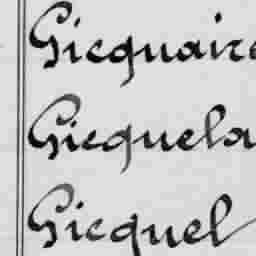 Gicquaire
Gicquela
Gicquel